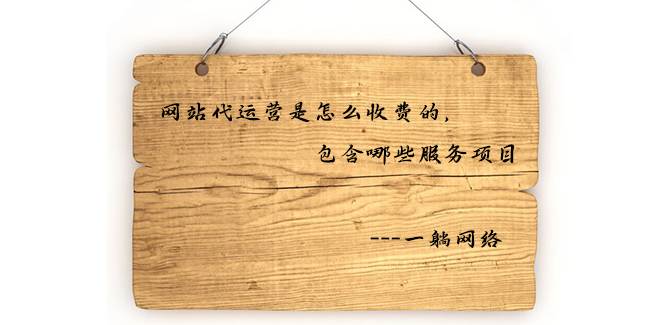 网站代运营是怎么收费的,
包含哪些服务项目
---一躺网络